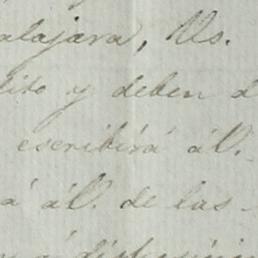 alajara, Vs.
dito y deben d
escribirá á V.
á á V. de las